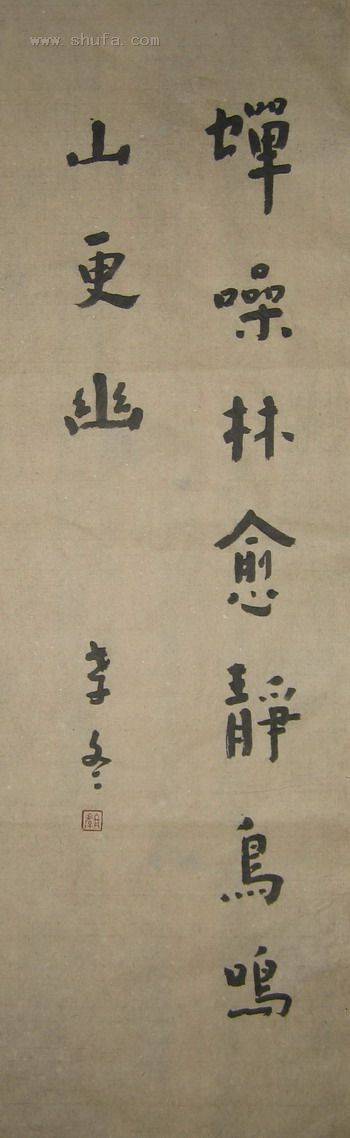 www.shufa.com
蟬噪林愈靜鳥鳴
山更幽
李冬